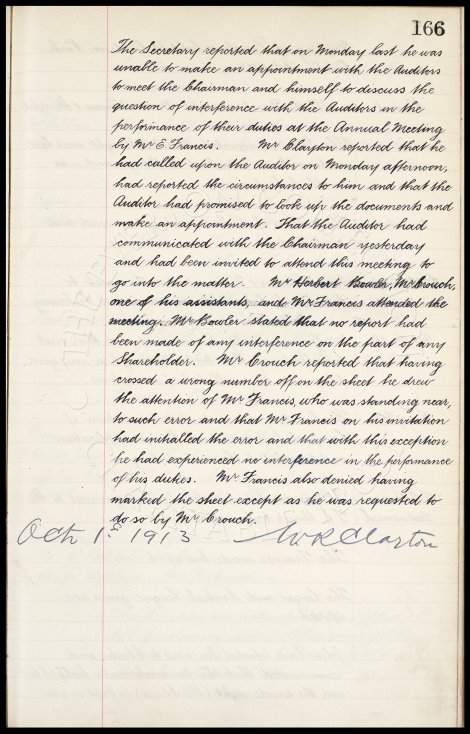 166
The Secretary reported that on Monday last he was
unable to make an appointment with the Auditors
to meet the Chairman and himself to discuss the
question of interference with the Auditors in the
performance of their duties at the Annual Meeting
by Mr E. Francis. Mr Clayton reported that he
had called upon the Auditor on Monday afternoon,
had reported the circumstances to him and that the
Auditor had promised to look up the documents and
make an appointment. That the Auditor had
communicated with the Chairman yesterday
and had been invited to attend this meeting to
go into the matter. Mr Herbert Bowler, Mr Crouch,
one of his assistants, and Mr Francis attended the
meeting. Mr Bowler stated that no report had
been made of any interference on the part of any
Shareholder. Mr Crouch reported that having
crossed a wrong number off on the sheet he drew
the attention of Mr Francis, who was standing near,
to such error and that Mr Francis on his invitation
had initialled the error and that with this exception
he had experienced no interference in the performance
of his duties. Mr Francis also denied having
marked the sheet except as he was requested to
do so by Mr Crouch.
Oct 1st 1913 W R Clarton